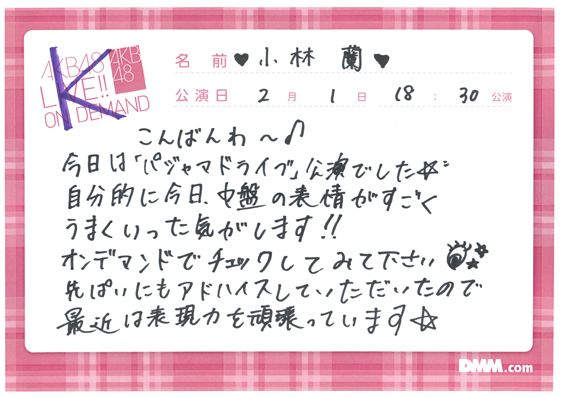 AKB48 LIVE!! ON DEMAND
AKB48
K
名前 ♥小林 蘭♥
公演日 2月 1日 18:30公演
こんばんわ〜♪
今日は「パジャマドライブ」公演でした☆
自分的に今日、中盤の表情がすごく
うまくいった気がします!!
オンデマンドでチェックしてみて下さい
先ぱいにもアドバイスしていただいたので
最近は表現力を頑張っています☆
DMM.com